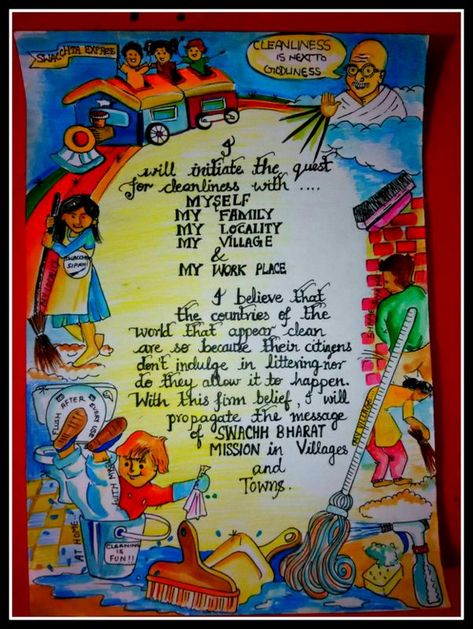 SWACHHTA EXPRESS
CLEANLINESS
IS NEXT TO
GODLINESS
I
will initiate the quest
for cleanliness with ....
MYSELF
MY FAMILY
MY LOCALITY
MY VILLAGE
&
MY WORK PLACE
I believe that
the countries of the
world that appear clean
are so because their citizens
don't indulge in littering nor
do they allow it to happen.
With this firm belief, I will
propagate the message
of SWACHH BHARAT
MISSION in Villages
and
Towns.
SWACCH
SIPAHI
FLUSH AFTER EVERY USE
AT HOME
CLEANING
IS
FUN!!